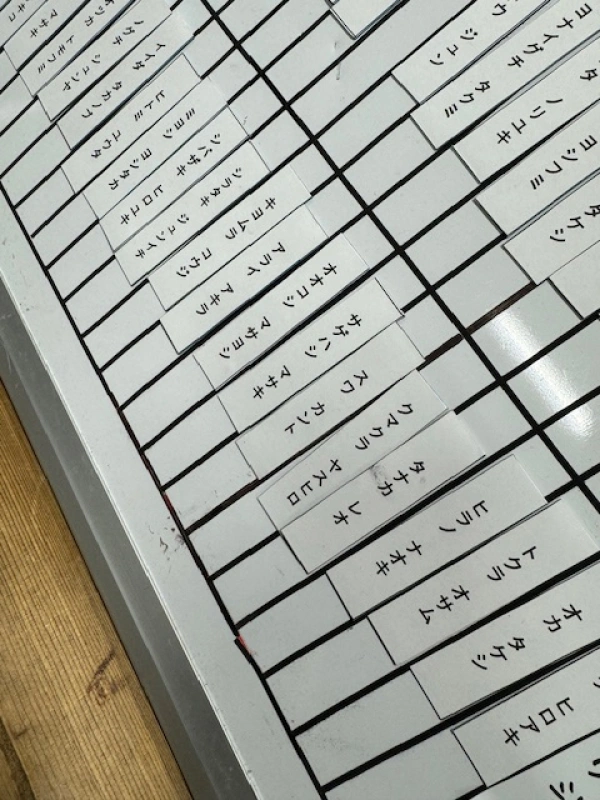 マサキ
トモフミ
ジュンヤ
イイダ タカノブ
ヒトミ ユウタ
ミヨシ ヨシタカ
シバザキ ヒロユキ
シラタキ ジュンイチ
キヨムラ コウジ
アライ アキラ
オオコシ マサヨシ
サゲハシ マサキ
スワ カント
クマクラ ヤスヒロ
タナカ レオ
ヒラノ ナオキ
トクラ オサム
オカ タケシ
ヒロアキ
ジュン
ヨナイグチ タクミ
ノリユキ
ヨシフミ
タケシ